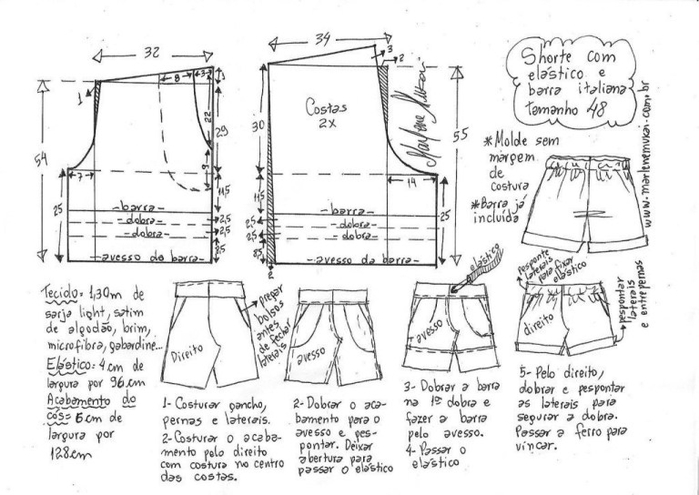 32
8
3
1
1
22
29
9
54
7
11,5
25
-barra-
-dobra-
-dobra-
2,5
2,5
2,5
-avesso da barra-
34
3
2
Costas
2x
Marlene Mukai
30
55
14
11,5
25
-barra-
-dobra-
-dobra-
2,5
2,5
-avesso da barra-
25
2
Shorte com
elástico e
barra italiana
tamanho 48
*Molde sem
margem
de
costura
*Barra já
incluída
www.marlenemukai.com.br
Tecido= 1,30m de
sarja light, satim
de algodão, brim,
microfibra, gabardine...
Elástico= 4cm de
largura por 96cm
Acabamento do
cós= 6cm de
largura por
128cm
Direito
Pregar
bolsos
antes
de fechar
laterais
1- Costurar gancho,
pernas e laterais.
2- Costurar o acaba-
mento pelo direito
com costura no centro
das costas.
avesso
2- Dobrar o aca-
bamento para o
avesso e pes-
pontar. Deixar
abertura para
passar o elástico
elástico
avesso
3- Dobrar a barra
na 1ª dobra e
fazer a barra
pelo avesso.
4- Passar o
elástico
Pesponte
laterais
para fixar
elástico
direito
pespontar
laterais
e entrepernas
5- Pelo direito,
dobrar e pespontar
as laterais para
segurar a dobra.
Passar a ferro para
vincar.